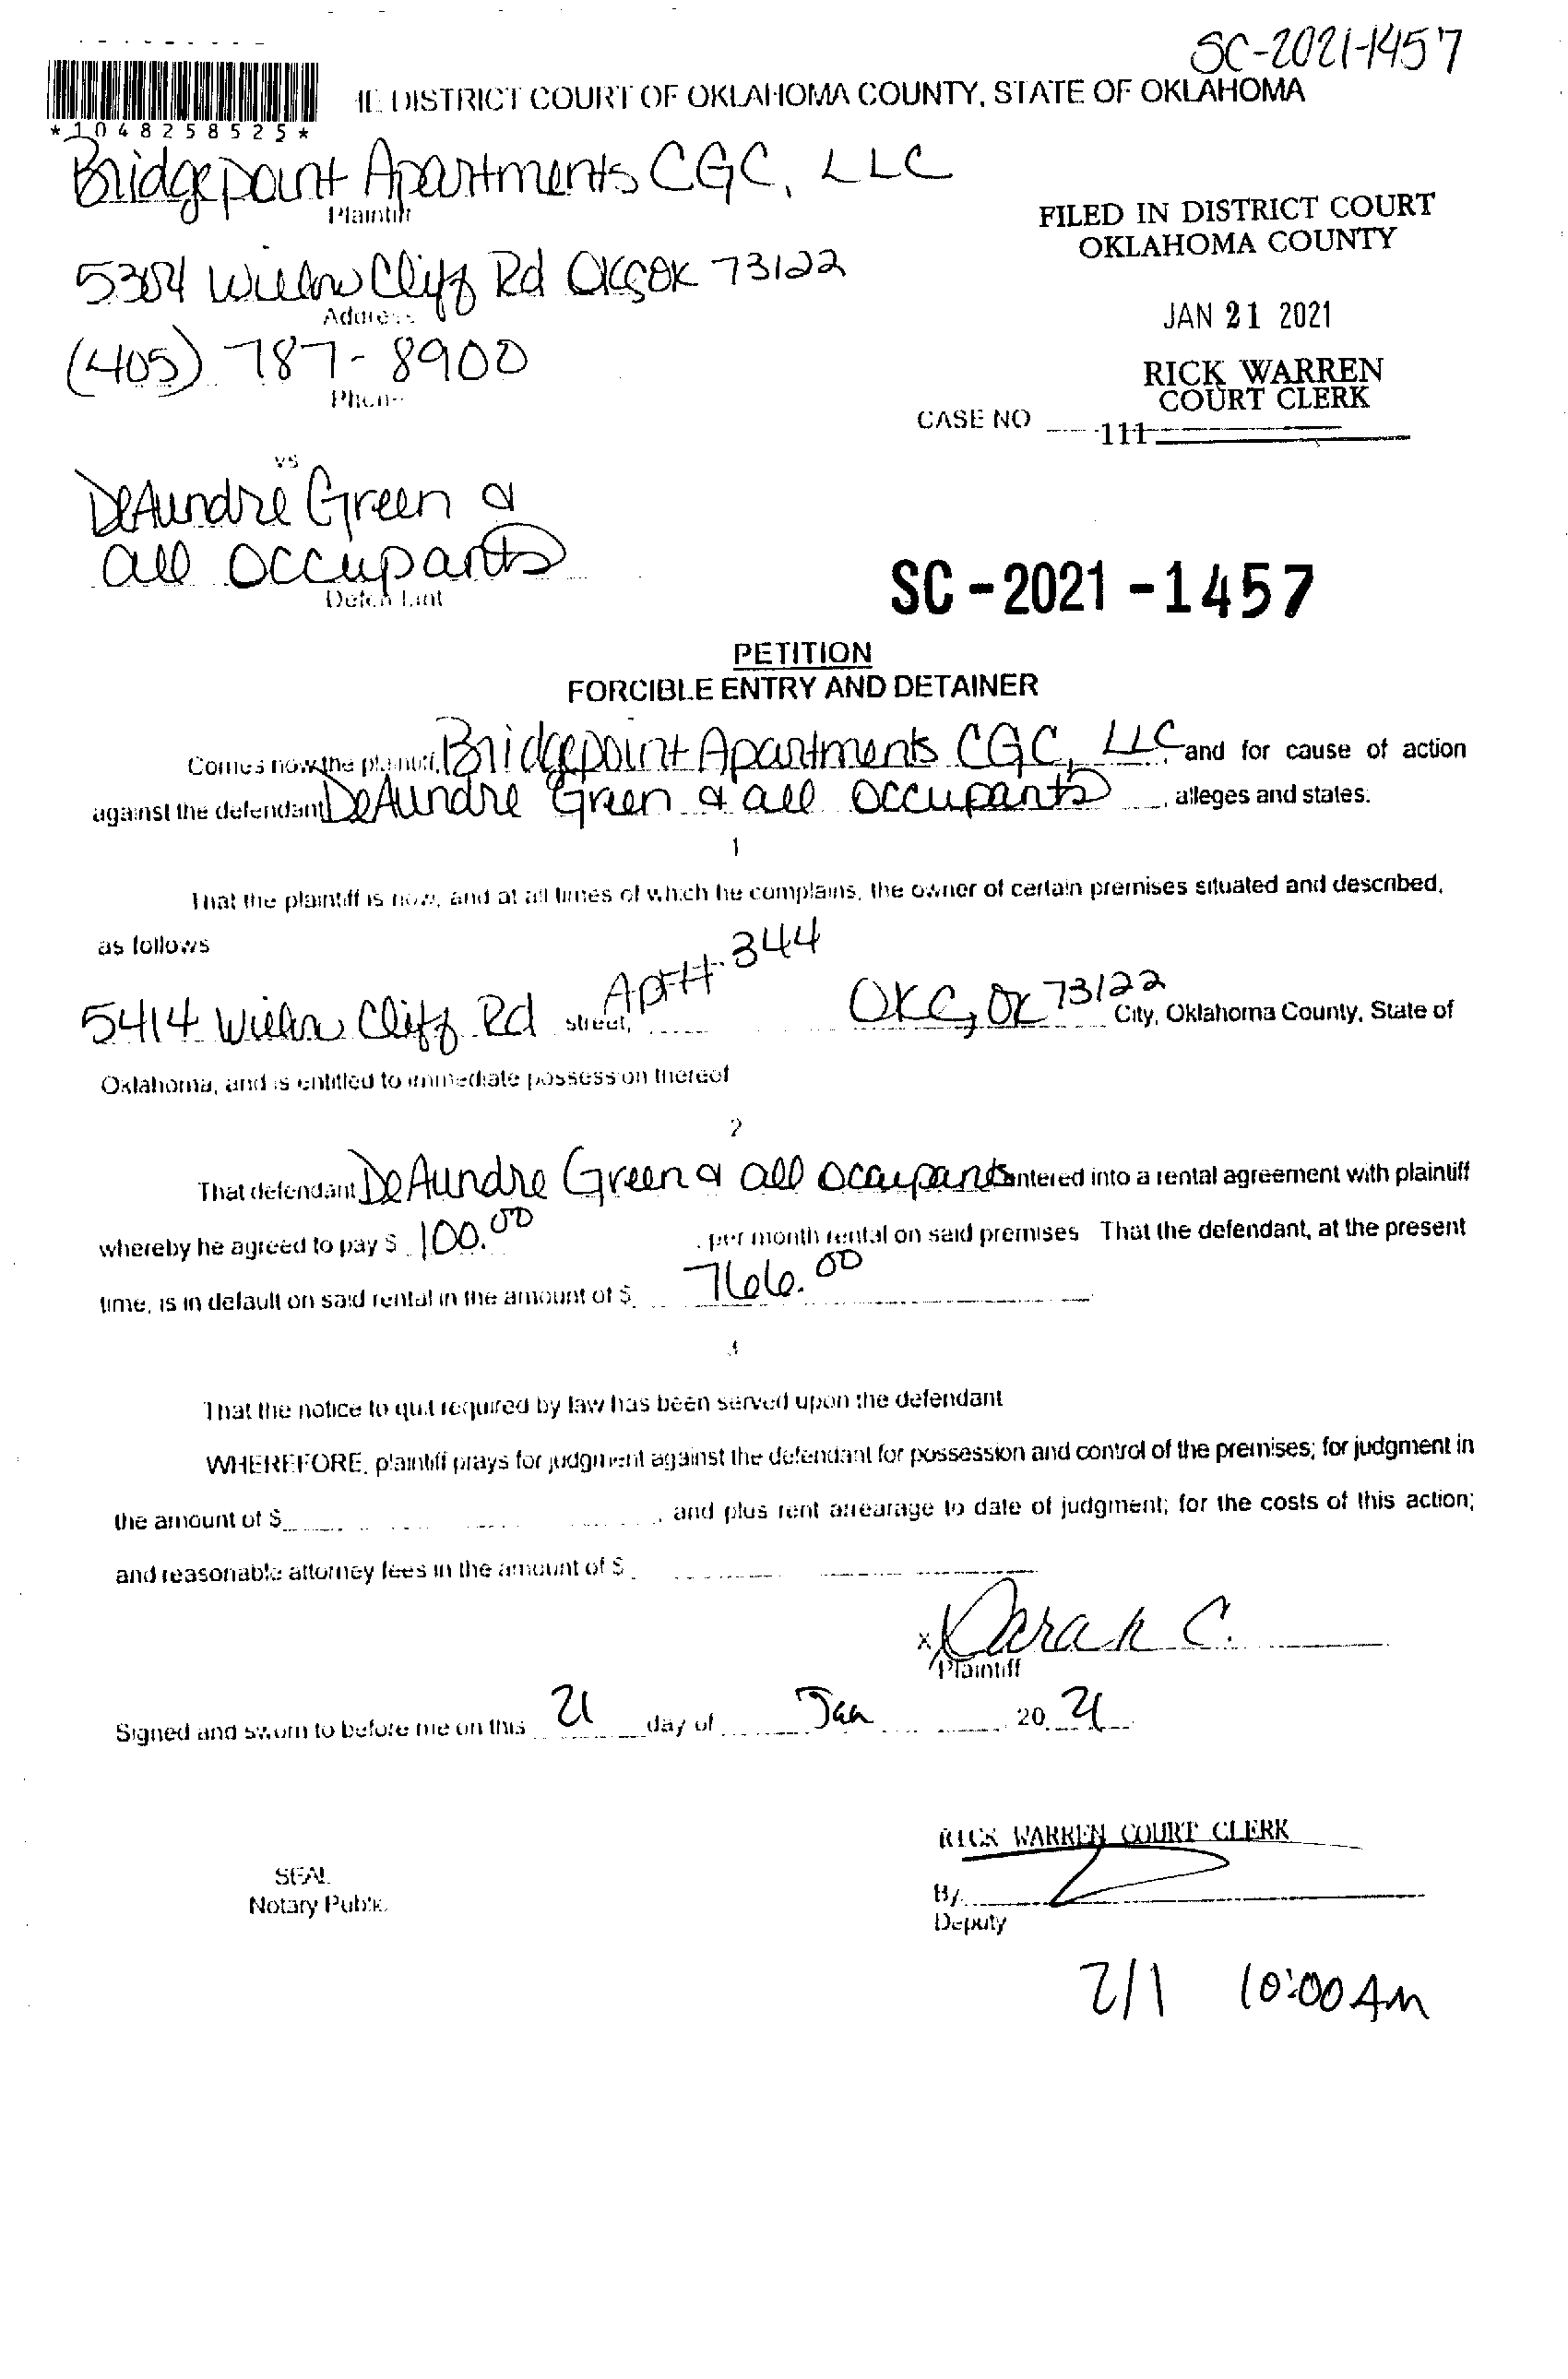 SC-2021-1457
*1048258525*
DISTRICT COURT OF OKLAHOMA COUNTY, STATE OF OKLAHOMA
Bridgepoint Apartments CGC, LLC
Plaintiff
FILED IN DISTRICT COURT
OKLAHOMA COUNTY
Willow Cliff Rd OKC OK 73122
Address
JAN 21 2021
(405) 787-8900
Phone
RICK WARREN
COURT CLERK
CASE NO
111
vs
DeAundre Green &
all occupants
Defendant
SC-2021-1457
PETITION
FORCIBLE ENTRY AND DETAINER
Comes now the plaintiff, Bridgepoint Apartments CGC, LLC, and for cause of action
against the defendant DeAundre Green & all occupants, alleges and states:
1
That the plaintiff is now, and at all times of which he complains, the owner of certain premises situated and described,
as follows
5414 Willow Cliff Rd street, Apt# 344 OKC, OK 73122 City, Oklahoma County, State of
Oklahoma, and is entitled to immediate possession thereof
2
That defendant DeAundre Green & all occupants entered into a rental agreement with plaintiff
whereby he agreed to pay $ 100.00, per month rental on said premises That the defendant, at the present
time, is in default on said rental in the amount of $ 766.00
3
That the notice to quit required by law has been served upon the defendant
WHEREFORE, plaintiff prays for judgment against the defendant for possession and control of the premises; for judgment in
the amount of $ , and plus rent arrearage to date of judgment; for the costs of this action;
and reasonable attorney fees in the amount of $
x Sarah C.
Plaintiff
Signed and sworn to before me on this 21 day of Jan 20 21
RICK WARREN COURT CLERK
SEAL
Notary Public
By
Deputy
2/1 10:00 AM